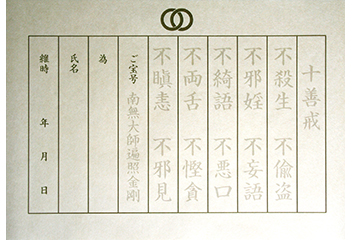 十善戒
不殺生 不偸盗
不邪婬 不妄語
不綺語 不悪口
不両舌 不慳貪
不瞋恚 不邪見
ご宝号 南無大師遍照金剛
為
氏名
維時 年 月 日